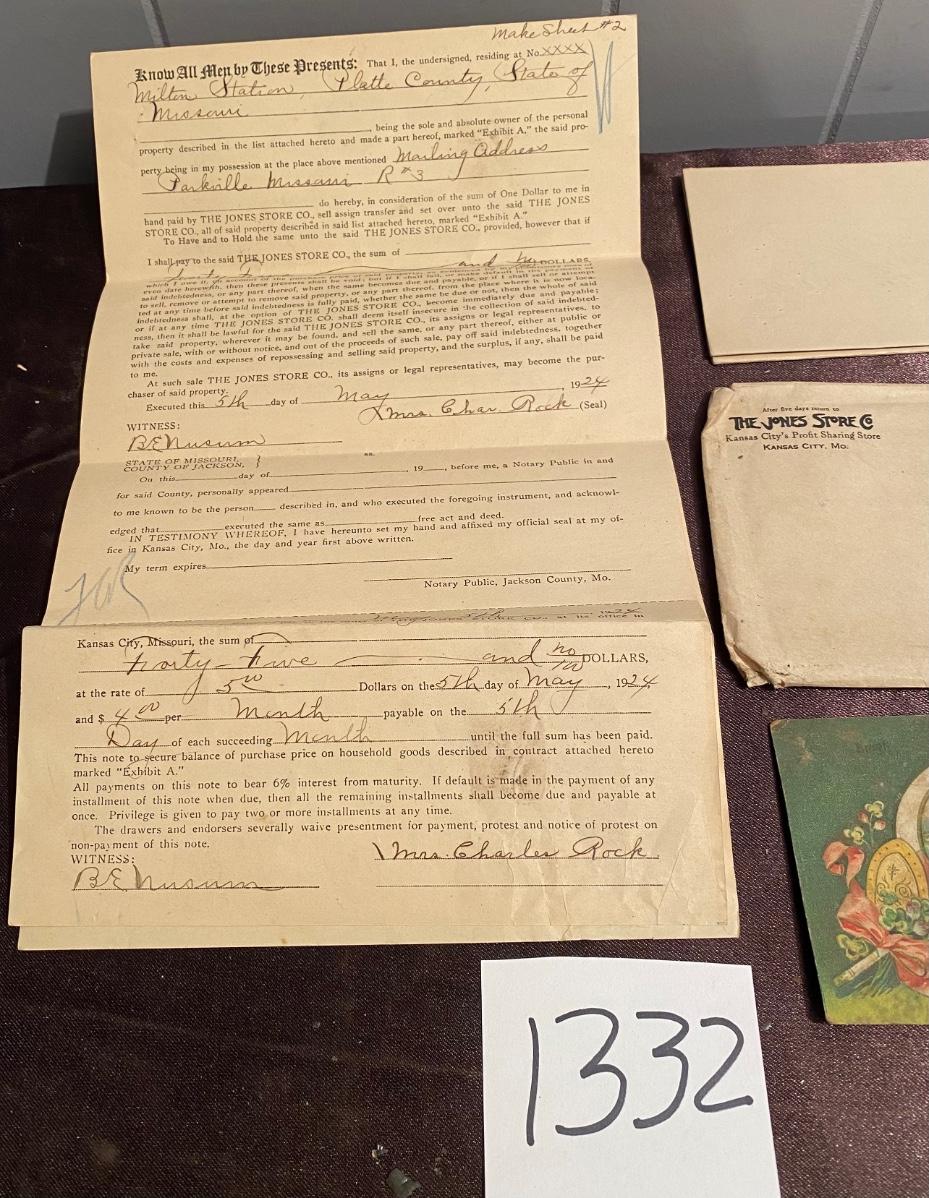 Make Sheet #2
Know All Men by These Presents: That I, the undersigned, residing at No. XXXX
Milton Station, Platte County, State of
Missouri
, being the sole and absolute owner of the personal
property described in the list attached hereto and made a part hereof, marked "Exhibit A." the said pro-
perty being in my possession at the place above mentioned Mailing Address
Parkville Missouri R#3
do hereby, in consideration of the sum of One Dollar to me in
hand paid by THE JONES STORE CO., sell assign transfer and set over unto the said THE JONES
STORE CO., all of said property described in said list attached hereto, marked "Exhibit A."
To Have and to Hold the same unto the said THE JONES STORE CO., provided, however that if
I shall pay to the said THE JONES STORE CO., the sum of
and no DOLLARS,
said indebtedness, or any part thereof, when the same becomes due and payable, or if I shall sell or attempt
to sell, remove or attempt to remove said property, or any part thereof, from the place where it is now loca-
ted at any time before said indebtedness is fully paid, whether the same be due or not, then the whole of said
indebtedness shall, at the option of THE JONES STORE CO., become immediately due and payable;
or if at any time THE JONES STORE CO. shall deem itself insecure in the collection of said indebted-
ness, then it shall be lawful for the said THE JONES STORE CO., its assigns or legal representatives, to
take said property, wherever it may be found, and sell the same, or any part thereof, either at public or
private sale, with or without notice, and out of the proceeds of such sale, pay off said indebtedness, together
with the costs and expenses of repossessing and selling said property, and the surplus, if any, shall be paid
to me.
At such sale THE JONES STORE CO., its assigns or legal representatives, may become the pur-
chaser of said property.
Executed this 5th day of May, 1924
X Mrs. Char. Rock (Seal)
WITNESS:
B E Nusum
STATE OF MISSOURI, } ss.
COUNTY OF JACKSON,
On this day of , 19 , before me, a Notary Public in and
for said County, personally appeared
to me known to be the person described in, and who executed the foregoing instrument, and acknowl-
edged that executed the same as free act and deed.
IN TESTIMONY WHEREOF, I have hereunto set my hand and affixed my official seal at my of-
fice in Kansas City, Mo., the day and year first above written.
My term expires
Notary Public, Jackson County, Mo.
Kansas City, Missouri, the sum of
Forty-Five and no/100 DOLLARS,
at the rate of 5 00 Dollars on the 5th day of May, 1924
and $ 4 00 per Month payable on the 5th
Day of each succeeding Month until the full sum has been paid.
This note to secure balance of purchase price on household goods described in contract attached hereto
marked "Exhibit A."
All payments on this note to bear 6% interest from maturity. If default is made in the payment of any
installment of this note when due, then all the remaining installments shall become due and payable at
once. Privilege is given to pay two or more installments at any time.
The drawers and endorsers severally waive presentment for payment, protest and notice of protest on
non-payment of this note.
WITNESS:
Mrs. Charles Rock
B E Nusum
After five days return to
THE JONES STORE CO
Kansas City's Profit Sharing Store
KANSAS CITY, MO.
1332